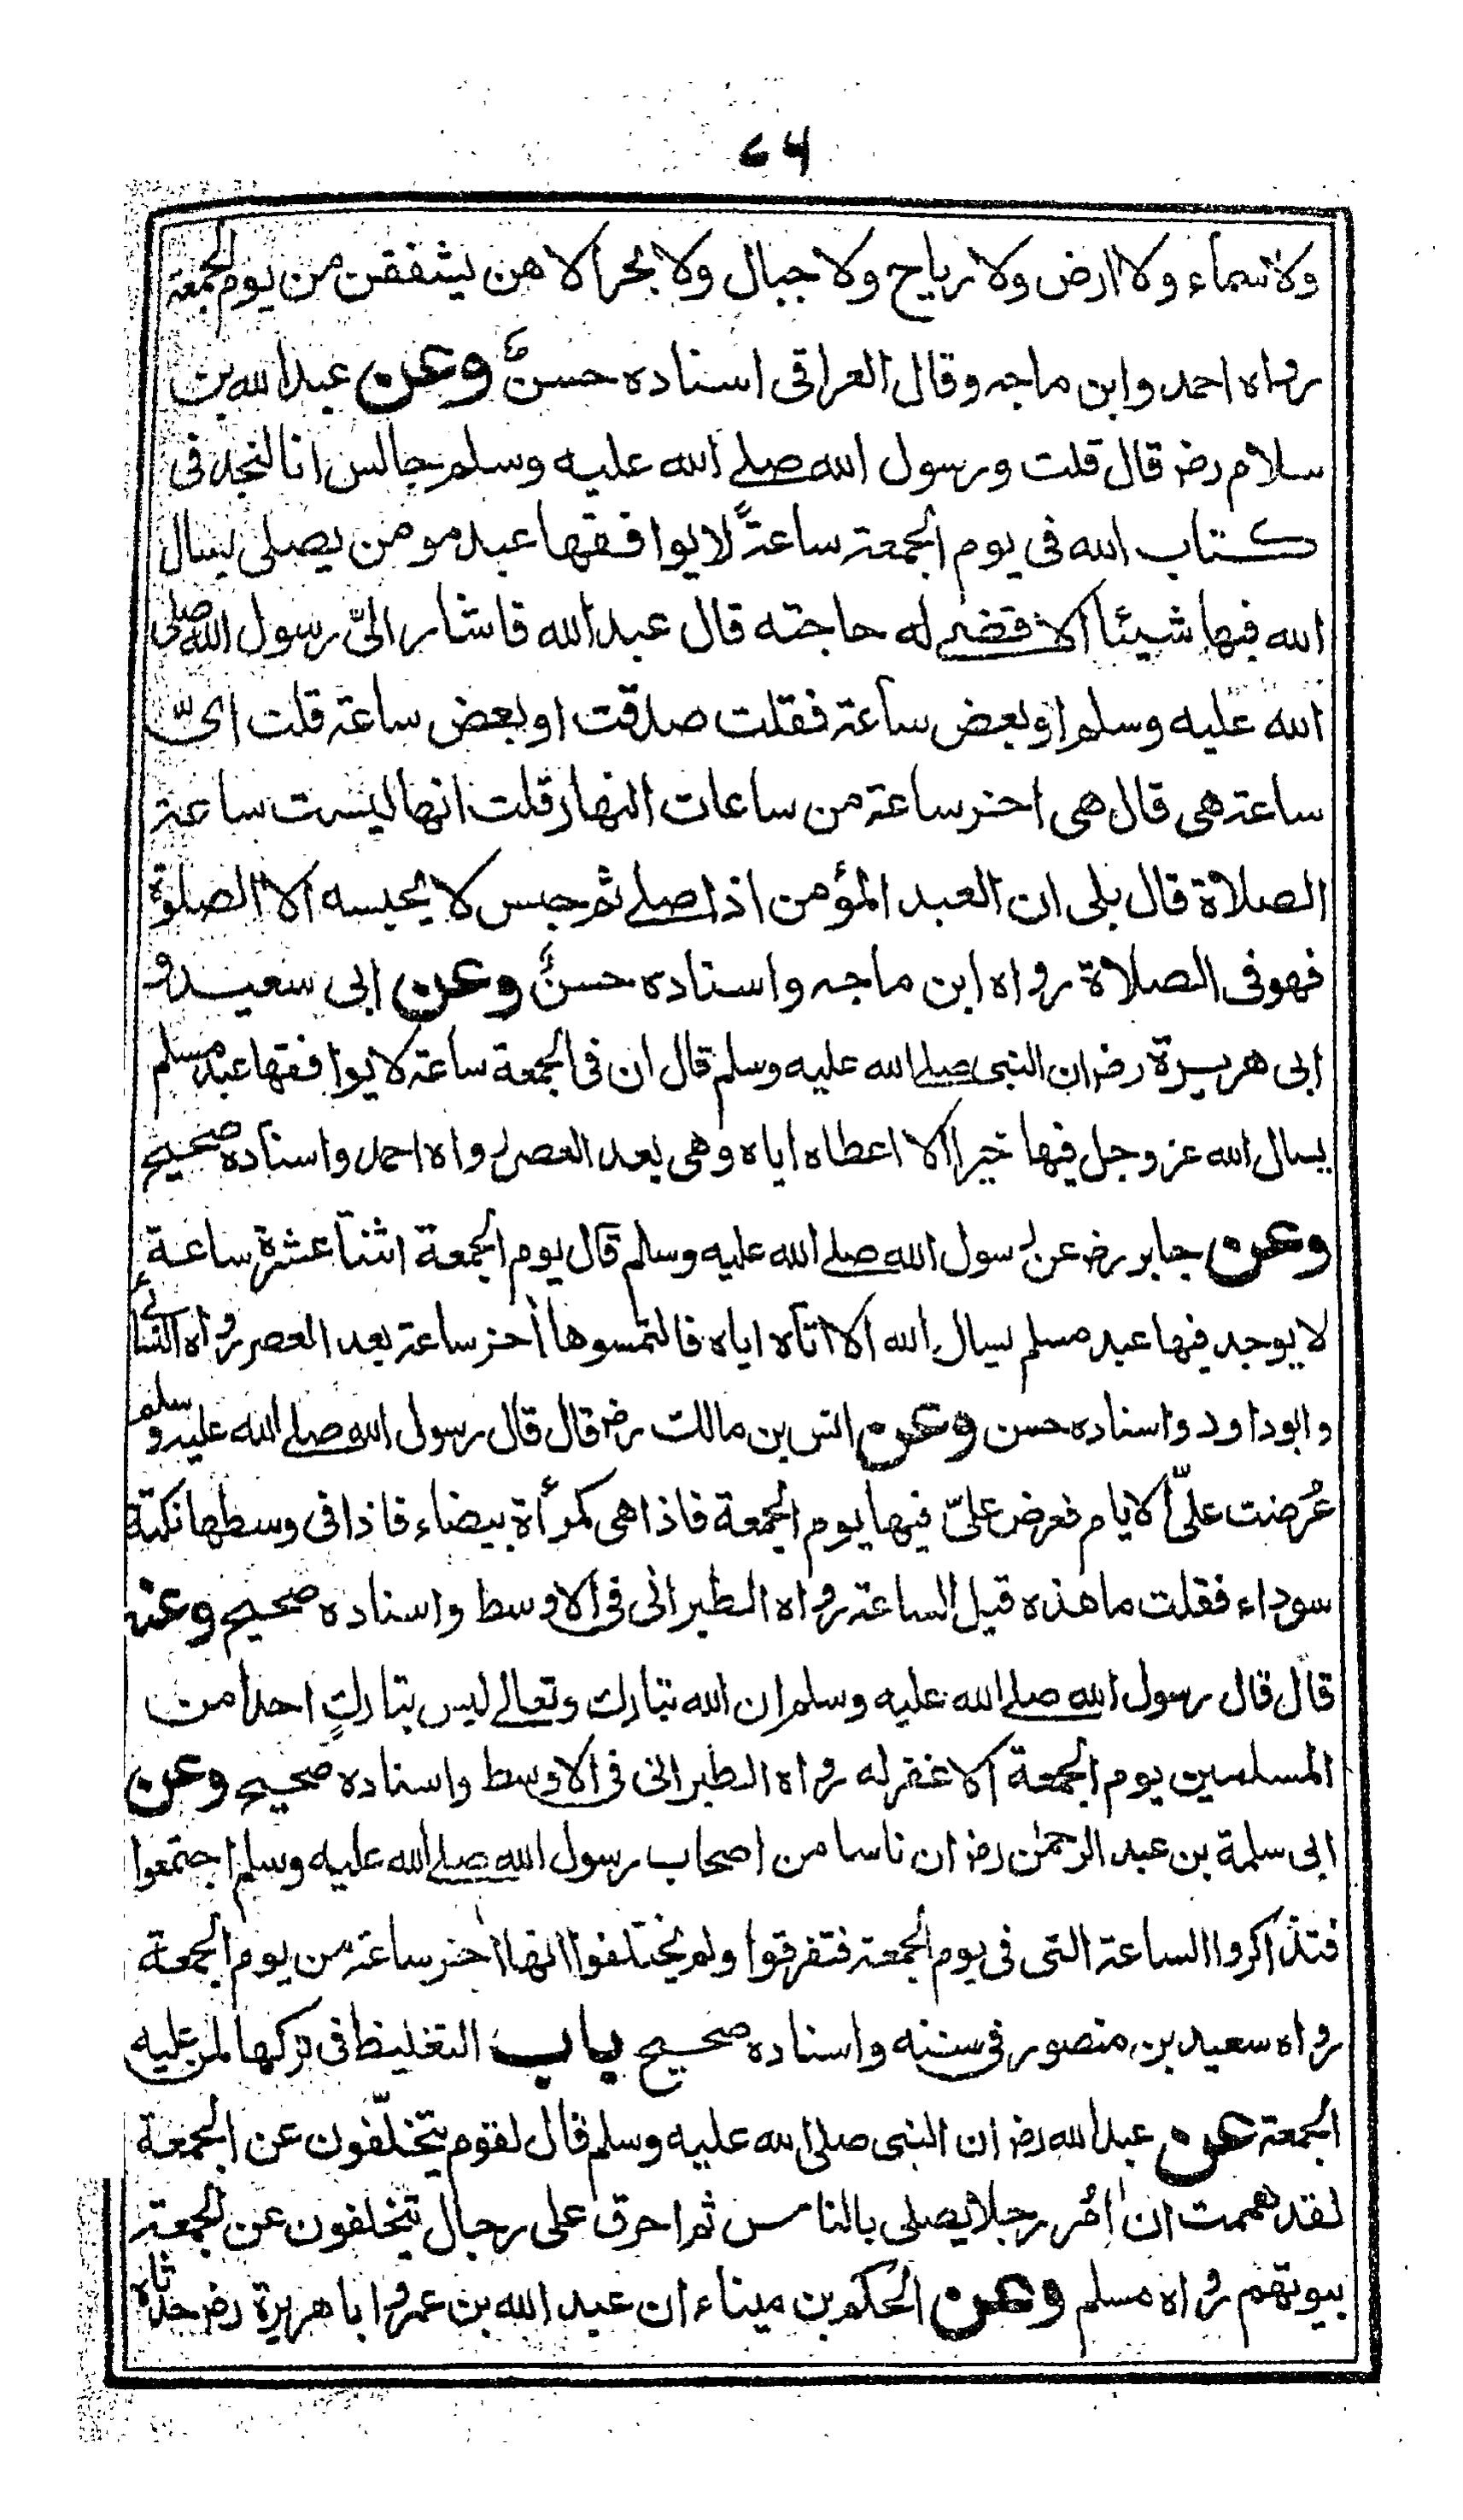 ٦٤
ولا سماء ولا ارض ولا رياح ولا جبال ولا بحر الا هن يشفقن من يوم الجمعة
رواه احمد وابن ماجه وقال العراقي اسناده حسنٌ وعن عبد الله بن
سلام رض قال قلت ورسول الله صلے الله عليه وسلم جالس انا لنجد فى
كتاب الله فى يوم الجمعة ساعةً لا يوافقها عبد مومن يصلى يسال
الله فيها شيئا الا قضے له حاجته قال عبد الله فاشار الىّ رسول الله صلى
الله عليه وسلم او بعض ساعة فقلت صدقت او بعض ساعة قلت اىّ
ساعة هى قال هى اخر ساعة من ساعات النهار قلت انها ليست ساعة
الصلاة قال بلى ان العبد المؤمن اذا صلے ثم جلس لا يحبسه الا الصلوة
فهو فى الصلاة رواه ابن ماجه واسناده حسنٌ وعن ابى سعيد و
ابى هريرة رض ان النبى صلے الله عليه وسلم قال ان فى الجمعة ساعة لا يوافقها عبد مسلم
يسال الله عز وجل فيها خيرا الا اعطاه اياه وهى بعد العصر رواه احمد واسناده صحيح
وعن جابر رض عن رسول الله صلے الله عليه وسلم قال يوم الجمعة اثنتا عشرة ساعة
لا يوجد فيها عبد مسلم يسال الله الا اتاه اياه فالتمسوها أخر ساعة بعد العصر رواه النسائے
وابو داود واسناده حسن وعن انس بن مالك رض قال قال رسول الله صلے الله عليه وسلم
عُرضت علىّ الايام فعرض علىّ فيها يوم الجمعة فاذا هى كمرأة بيضاء فاذا فى وسطها نكتة
سوداء فقلت ما هذه قيل الساعة رواه الطبرانى فى الاوسط واسناده صحيح وعنه
قال قال رسول الله صلے الله عليه وسلم ان الله تبارك وتعالے ليس بتاركٍ احدا من
المسلمين يوم الجمعة الا غفر له رواه الطبرانى فى الاوسط واسناده صحيح وعن
ابى سلمة بن عبد الرحمن رض ان ناسا من اصحاب رسول الله صلے الله عليه وسلم اجتمعوا
فتذاكروا الساعة التى فى يوم الجمعة فتفرقوا ولم يختلفوا انها اخر ساعة من يوم الجمعة
رواه سعيد بن منصور فى سننه واسناده صحيح باب التغليظ فى تركها لمن عليه
الجمعة عن عبد الله رض ان النبى صلى الله عليه وسلم قال لقوم يتخلّفون عن الجمعة
لقد هممت ان اٰمُر رجلا يصلى بالناس ثم احرق على رجال يتخلفون عن الجمعة
بيوتهم رواه مسلم وعن الحكم بن ميناء ان عبد الله بن عمر وابا هريرة رض حدثاه